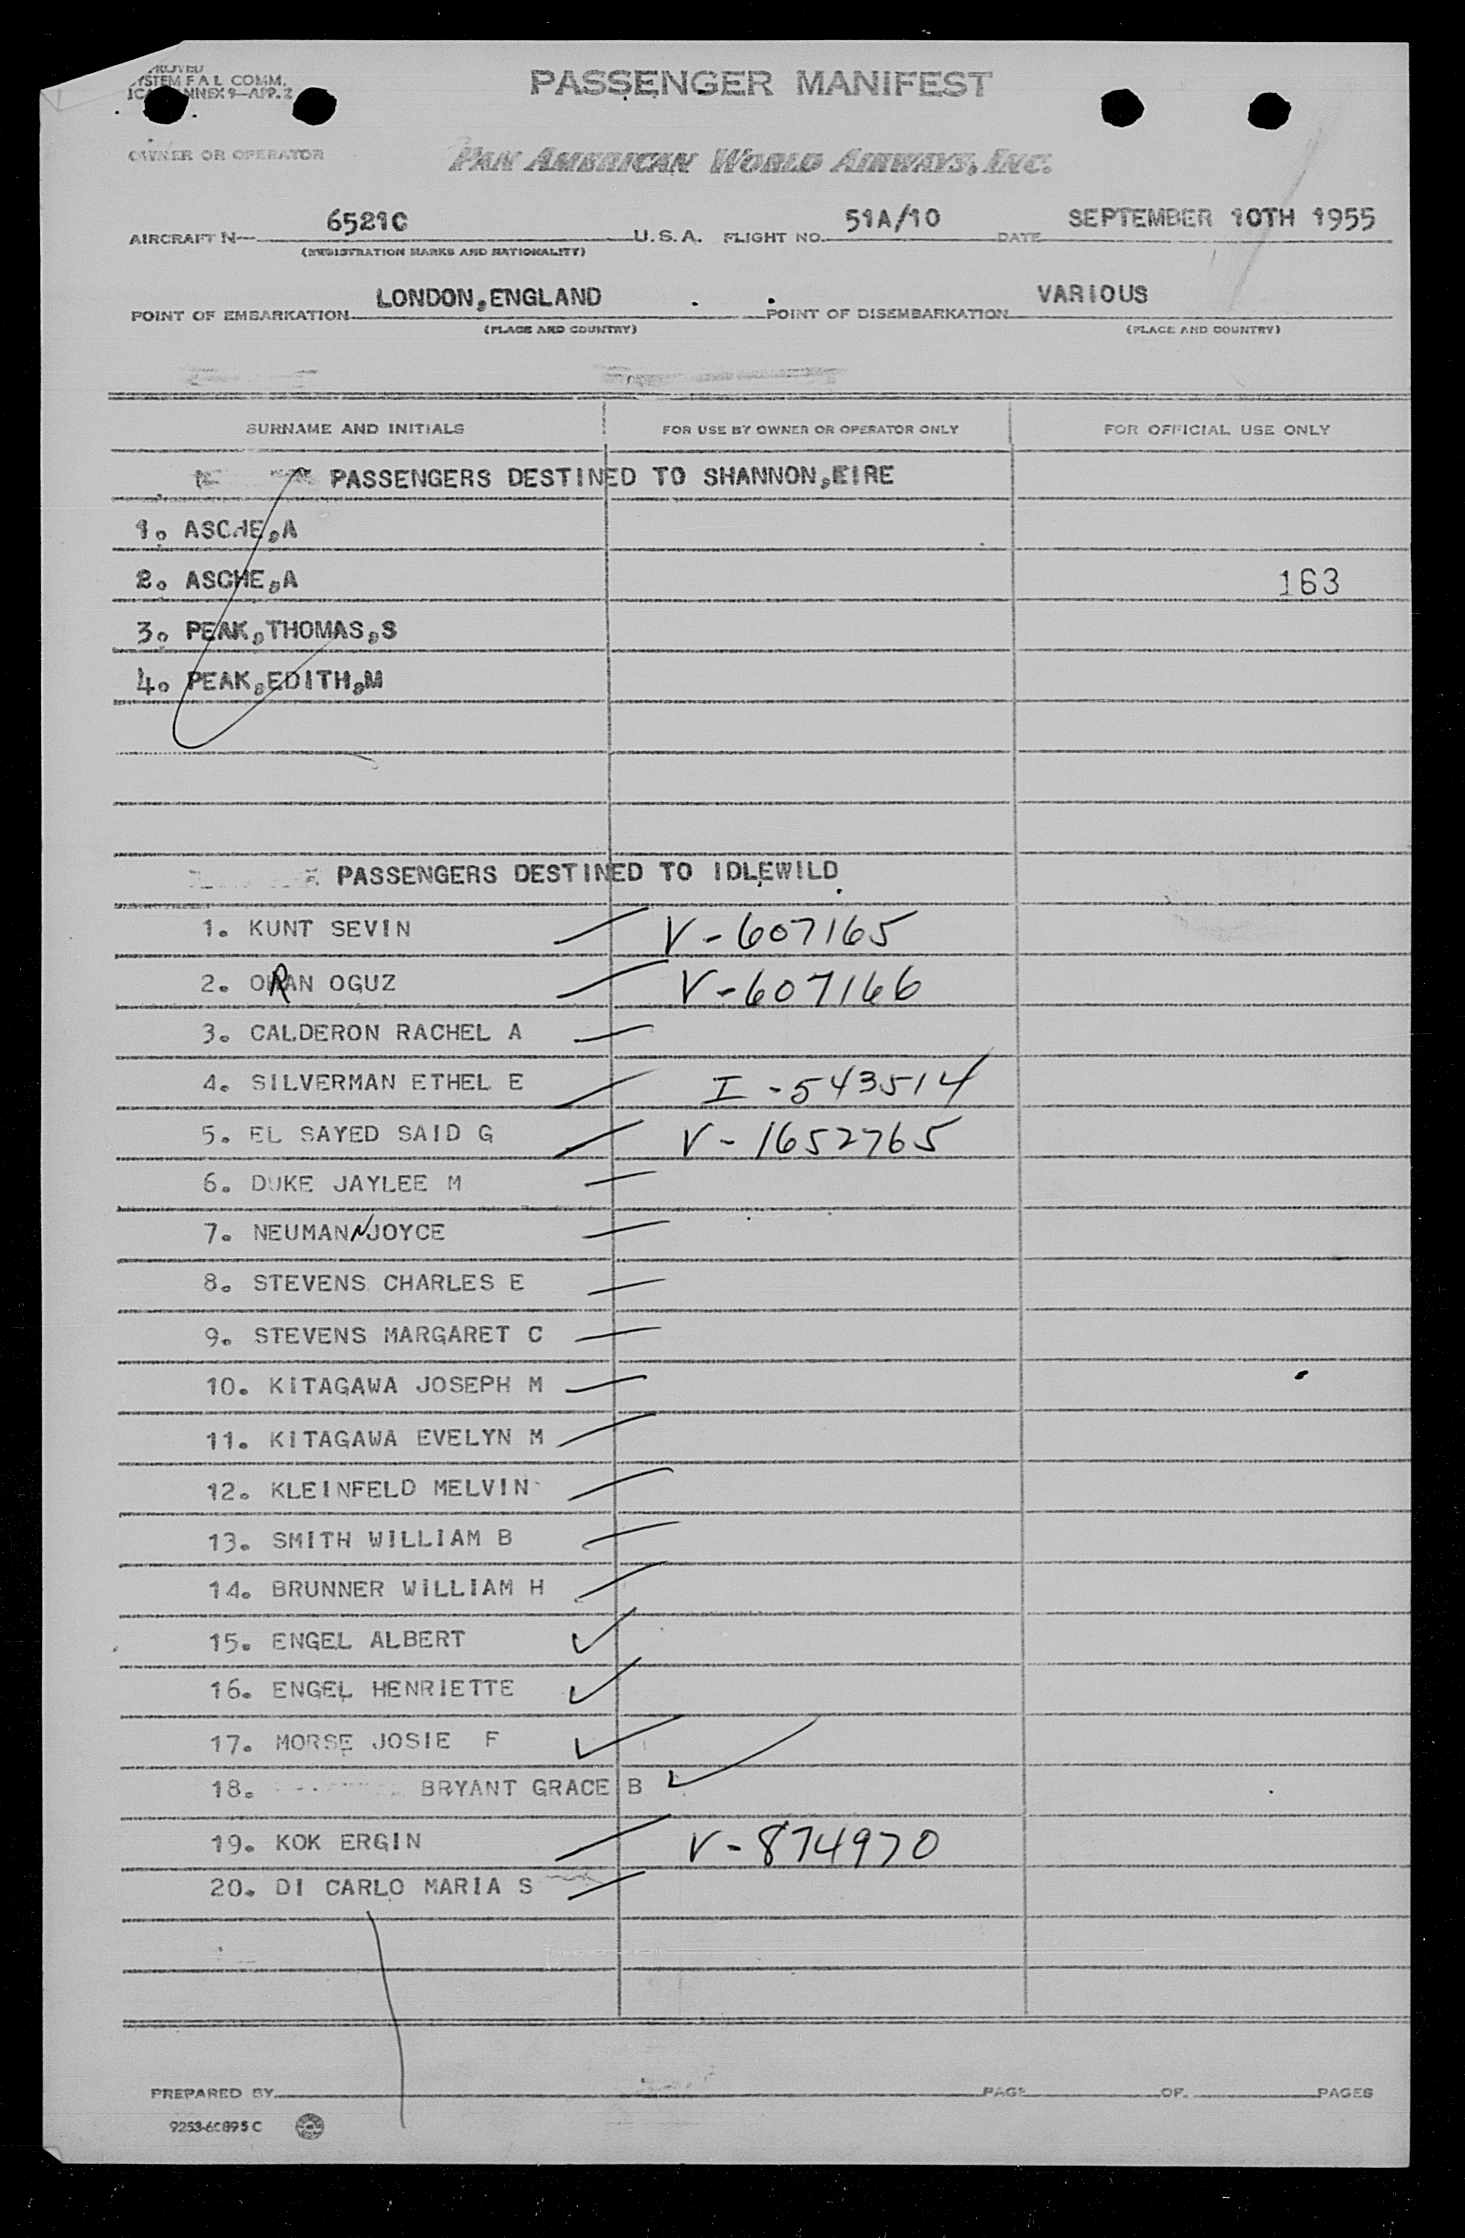 SYSTEM F A L COMM.
PASSENGER MANIFEST
OWNER OR OPERATOR
PAN AMERICAN WORLD AIRWAYS, INC.
AIRCRAFT N— 6521C U.S.A. FLIGHT NO. 51A/10 DATE SEPTEMBER 10TH 1955
(REGISTRATION MARKS AND NATIONALITY)
POINT OF EMBARKATION LONDON,ENGLAND POINT OF DISEMBARKATION VARIOUS
(PLACE AND COUNTRY) (PLACE AND COUNTRY)
SURNAME AND INITIALS FOR USE BY OWNER OR OPERATOR ONLY FOR OFFICIAL USE ONLY
PASSENGERS DESTINED TO SHANNON,EIRE
1. ASCHE,A
2. ASCHE,A 163
3. PEAK,THOMAS,S
4. PEAK,EDITH,M
PASSENGERS DESTINED TO IDLEWILD
1. KUNT SEVIN V-607165
2. ORAN OGUZ V-607166
3. CALDERON RACHEL A
4. SILVERMAN ETHEL E I-543514
5. EL SAYED SAID G V-1652765
6. DUKE JAYLEE M
7. NEUMANN JOYCE
8. STEVENS CHARLES E
9. STEVENS MARGARET C
10. KITAGAWA JOSEPH M
11. KITAGAWA EVELYN M
12. KLEINFELD MELVIN
13. SMITH WILLIAM B
14. BRUNNER WILLIAM H
15. ENGEL ALBERT
16. ENGEL HENRIETTE
17. MORSE JOSIE F
18. BRYANT GRACE B
19. KOK ERGIN V-874970
20. DI CARLO MARIA S
PREPARED BY PAGE OF PAGES